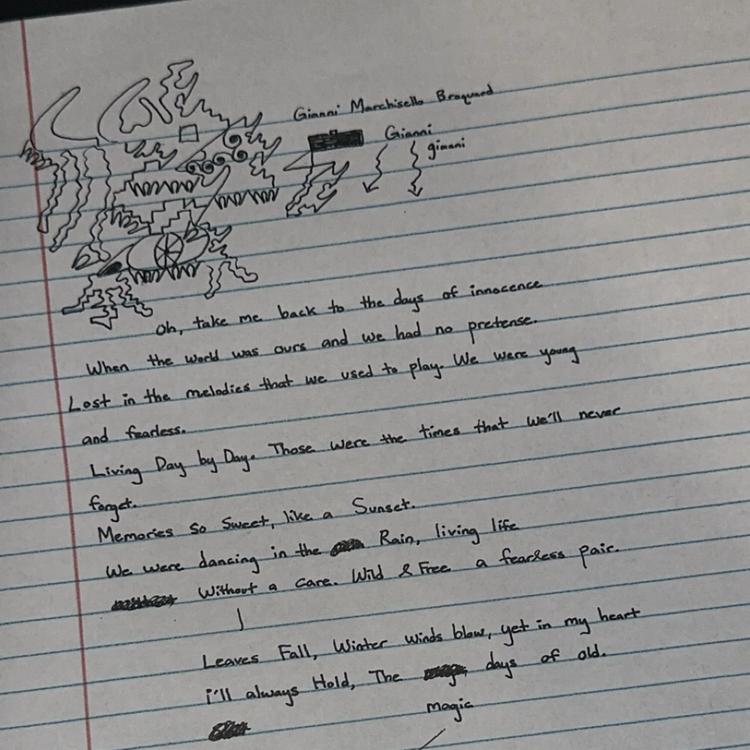 Gianni Marchisello Broquard
Gianni
gimani
Oh, take me back to the days of innocence
When the world was ours and we had no pretense.
Lost in the melodies that we used to play. We were young
and fearless.
Living Day by Day. Those were the times that we'll never
forget.
Memories So Sweet, like a Sunset.
We were dancing in the Rain, living life
Without a care. Wild & Free a fearless pair.
Leaves Fall, Winter winds blow, yet in my heart
i'll always Hold, The days of old.
magic